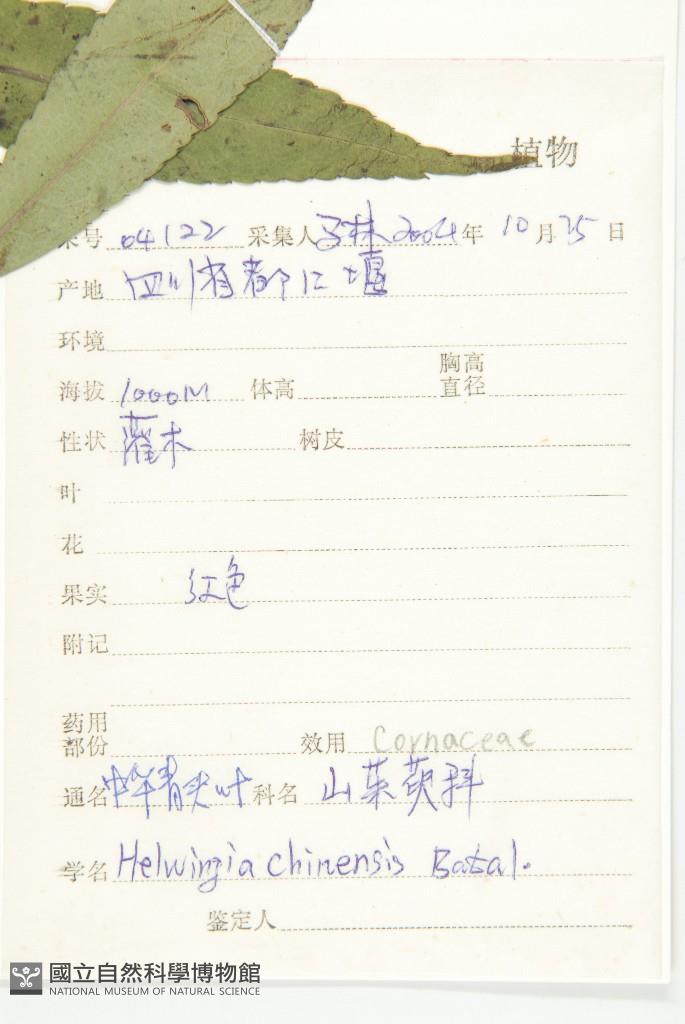 植物
号 04122 采集人 马林 2004年 10月25日
产地 四川省都江堰
环境
海拔 1000M 体高 胸高直径
性状 灌木 树皮
叶
花
果实 红色
附记
药用部份 效用 Cornaceae
通名 中华青荚叶 科名 山茱萸科
学名 Helwingia chinensis Batal.
鉴定人
國立自然科學博物館
NATIONAL MUSEUM OF NATURAL SCIENCE